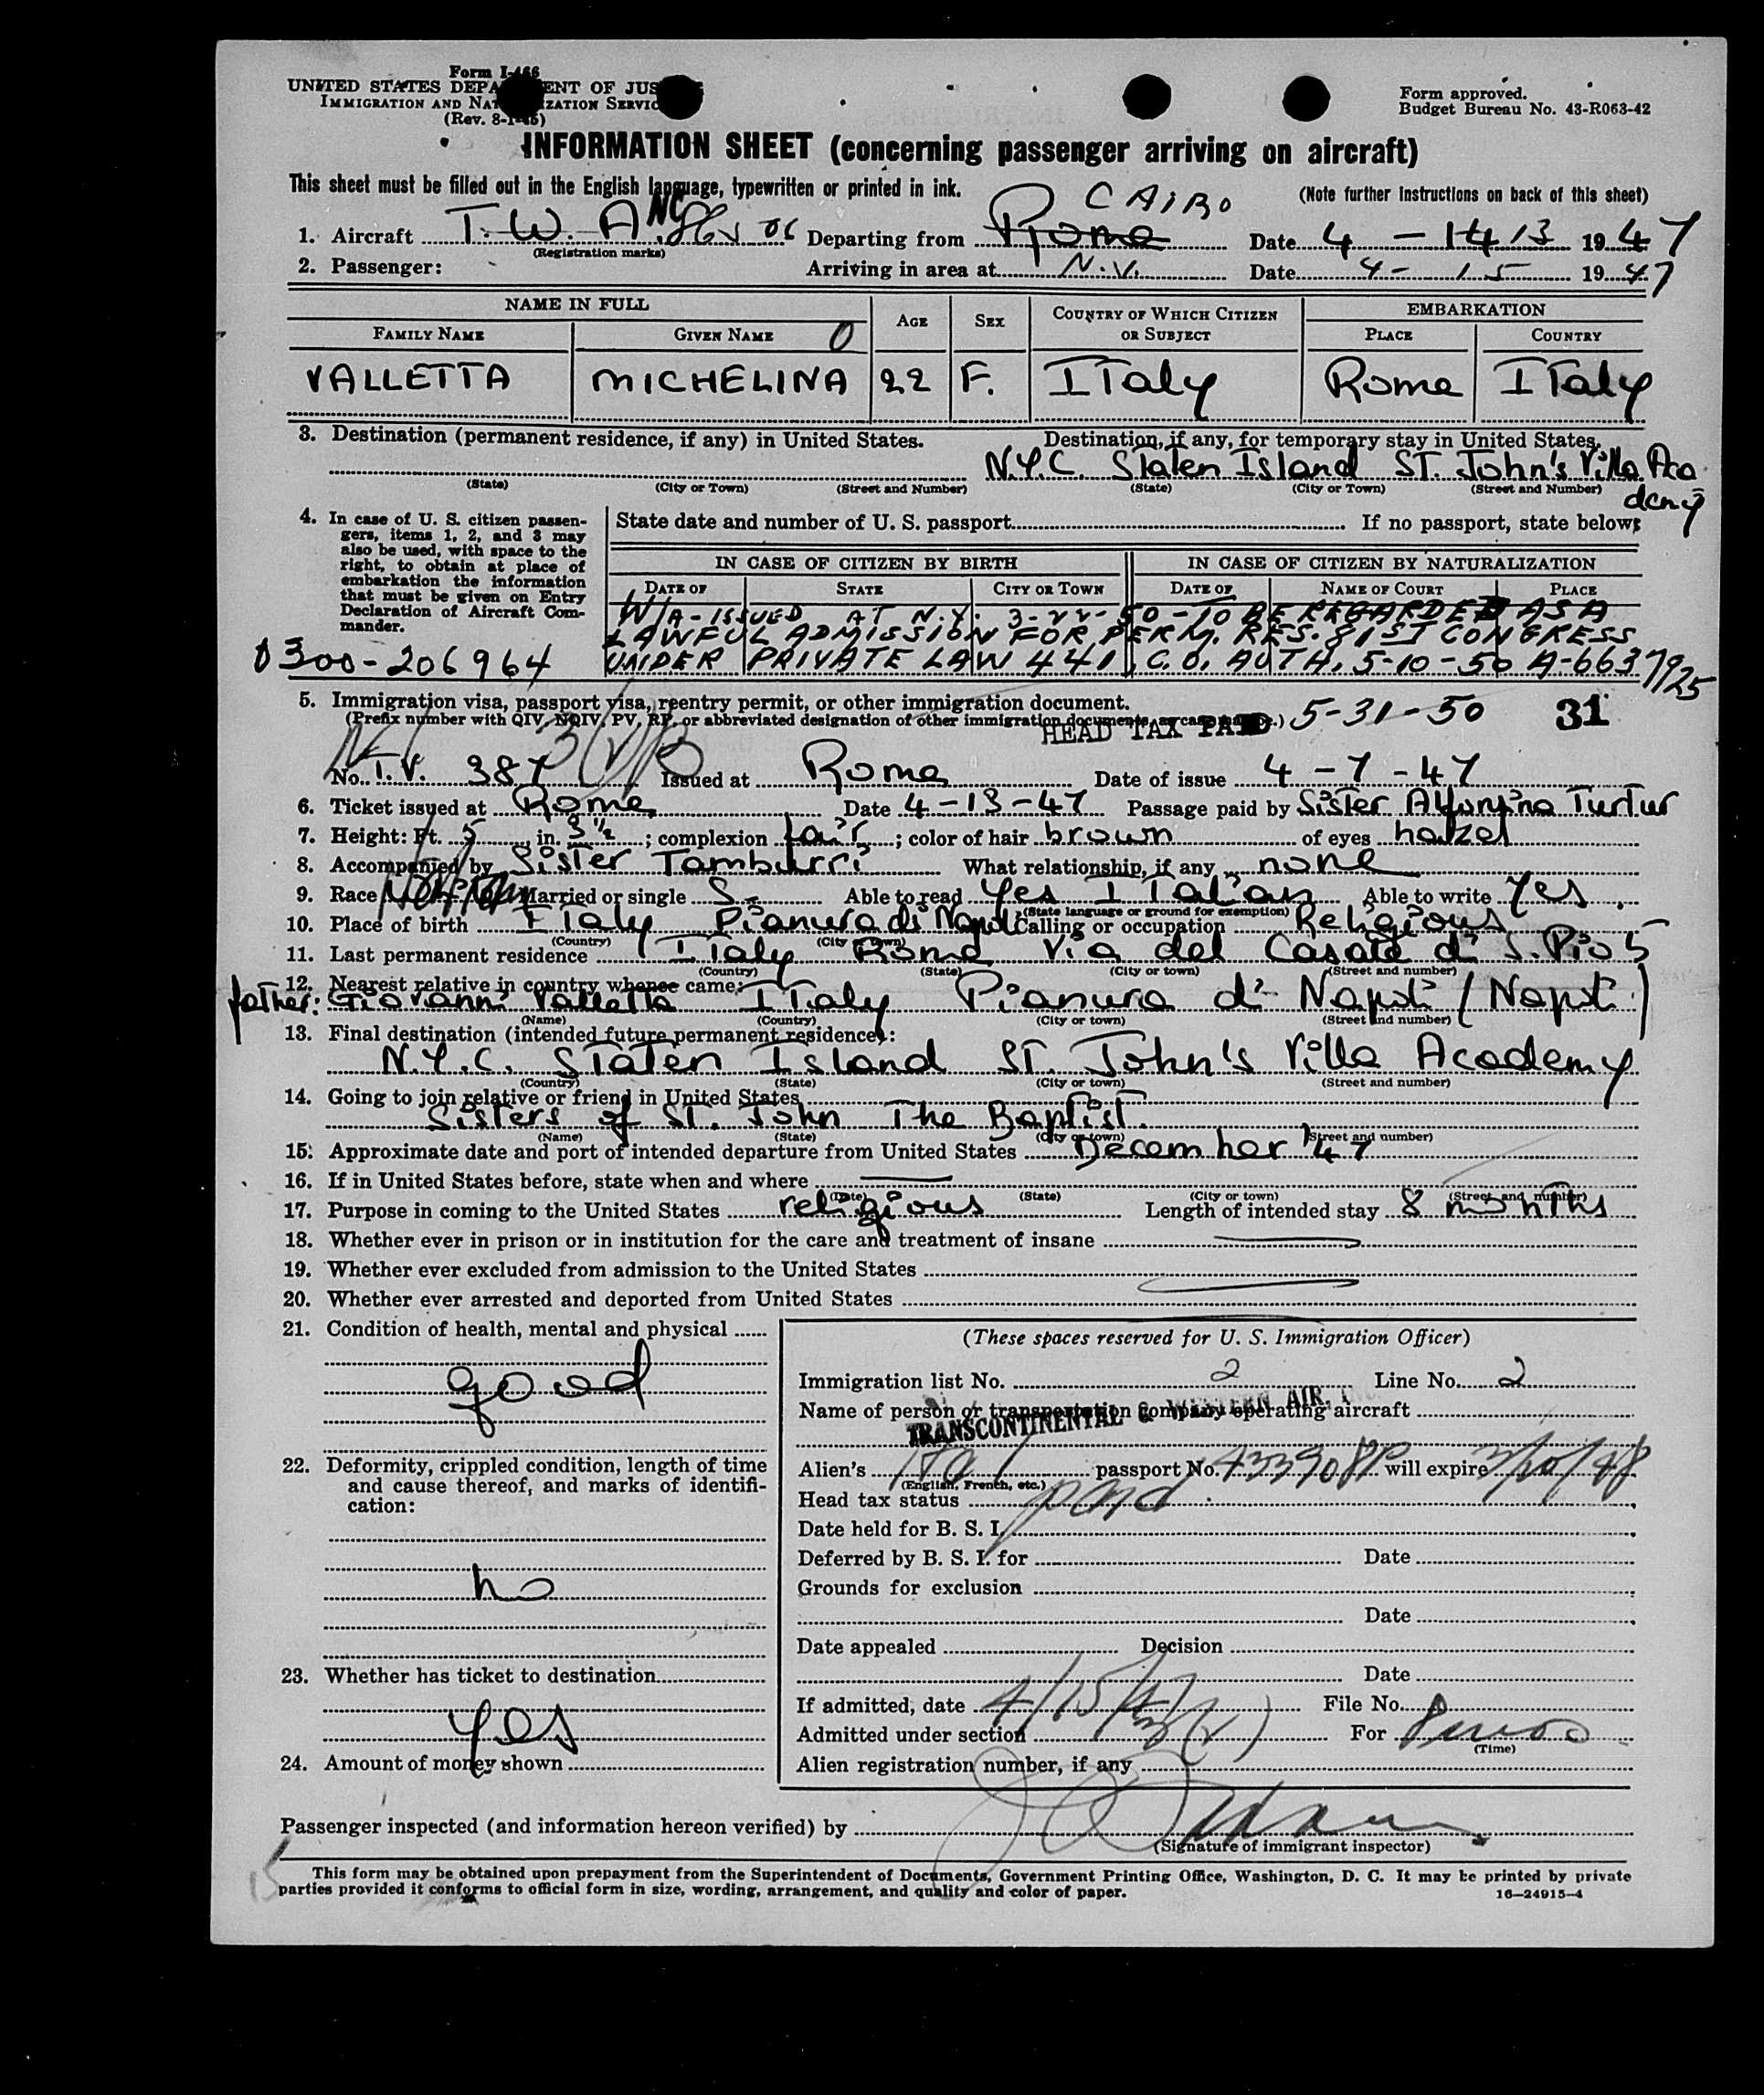 Form I-466
UNITED STATES DEPARTMENT OF JUSTICE
IMMIGRATION AND NATURALIZATION SERVICE
(Rev. 8-1-45)
Form approved.
Budget Bureau No. 43-R063-42
INFORMATION SHEET (concerning passenger arriving on aircraft)
This sheet must be filled out in the English language, typewritten or printed in ink.
(Note further instructions on back of this sheet)
CAIRO
1. Aircraft T.W.A. NC Departing from Rome Date 4-1413 1947
(Registration marks)
2. Passenger: Arriving in area at N.Y. Date 4-15 1947
NAME IN FULL AGE SEX COUNTRY OF WHICH CITIZEN OR SUBJECT EMBARKATION
FAMILY NAME GIVEN NAME PLACE COUNTRY
VALLETTA MICHELINA 22 F. ITaly Rome ITaly
3. Destination (permanent residence, if any) in United States. Destination, if any, for temporary stay in United States.
N.Y.C. STaTen Island ST. John's Villa Academy
(State) (City or Town) (Street and Number) (State) (City or Town) (Street and Number)
4. In case of U. S. citizen passen-
gers, items 1, 2, and 3 may
also be used, with space to the
right, to obtain at place of
embarkation the information
that must be given on Entry
Declaration of Aircraft Com-
mander.
State date and number of U. S. passport If no passport, state below:
IN CASE OF CITIZEN BY BIRTH IN CASE OF CITIZEN BY NATURALIZATION
DATE OF STATE CITY OR TOWN DATE OF NAME OF COURT PLACE
W/A-ISSUED AT N.Y. 3-22-50-TO BE REGARDED AS A
LAWFUL ADMISSION FOR PERM. RES. 81ST CONGRESS
0300-206964 UNDER PRIVATE LAW 441, C.O. AUTH. 5-10-50 A-6637925
5. Immigration visa, passport visa, reentry permit, or other immigration document.
(Prefix number with QIV, NQIV, PV, RP, or abbreviated designation of other immigration documents, as case may be.)
HEAD TAX PAID 5-31-50 31
3(2)
No. T.V. 387 Issued at Rome Date of issue 4-7-47
6. Ticket issued at Rome Date 4-13-47 Passage paid by Sister Alfonsina Turtur
7. Height: Ft. 5 in. 3½; complexion fair; color of hair brown of eyes hatzel
8. Accompanied by Sister Tamburri What relationship, if any none
9. Race Married or single S. Able to read Yes ITalian Able to write Yes.
(State language or ground for exemption)
10. Place of birth ITaly Pianura di Napoli Calling or occupation Religious
(Country) (City or town)
11. Last permanent residence ITaly Rome Via del Casale di S. Pio 5
(Country) (State) (City or town) (Street and number)
12. Nearest relative in country whence came:
father: Giovanni Valletta ITaly Pianura di Napoli (Napoli)
(Name) (Country) (City or town) (Street and number)
13. Final destination (intended future permanent residence):
N.Y.C. STaTen Island ST. John's Villa Academy
(Country) (State) (City or town) (Street and number)
14. Going to join relative or friend in United States
Sisters of ST. John The Baptist.
(Name) (State) (City or town) (Street and number)
15. Approximate date and port of intended departure from United States December 47
16. If in United States before, state when and where
(Date) (State) (City or town) (Street and number)
17. Purpose in coming to the United States religious Length of intended stay 8 months
18. Whether ever in prison or in institution for the care and treatment of insane
19. Whether ever excluded from admission to the United States
20. Whether ever arrested and deported from United States
21. Condition of health, mental and physical
good
22. Deformity, crippled condition, length of time
and cause thereof, and marks of identifi-
cation:
no
23. Whether has ticket to destination
yes
24. Amount of money shown
(These spaces reserved for U. S. Immigration Officer)
Immigration list No. 2 Line No. 2
Name of person or transportation company operating aircraft
TRANSCONTINENTAL & WESTERN AIR, INC
Alien's Ital passport No. 433908P will expire 3/20/48
(English, French, etc.)
Head tax status paid
Date held for B. S. I.
Deferred by B. S. I. for Date
Grounds for exclusion
Date
Date appealed Decision
Date
If admitted, date 4/15/47 File No.
Admitted under section 3(2) For 8 mos
(Time)
Alien registration number, if any
Passenger inspected (and information hereon verified) by
(Signature of immigrant inspector)
This form may be obtained upon prepayment from the Superintendent of Documents, Government Printing Office, Washington, D. C. It may be printed by private
parties provided it conforms to official form in size, wording, arrangement, and quality and color of paper. 16—24915-4